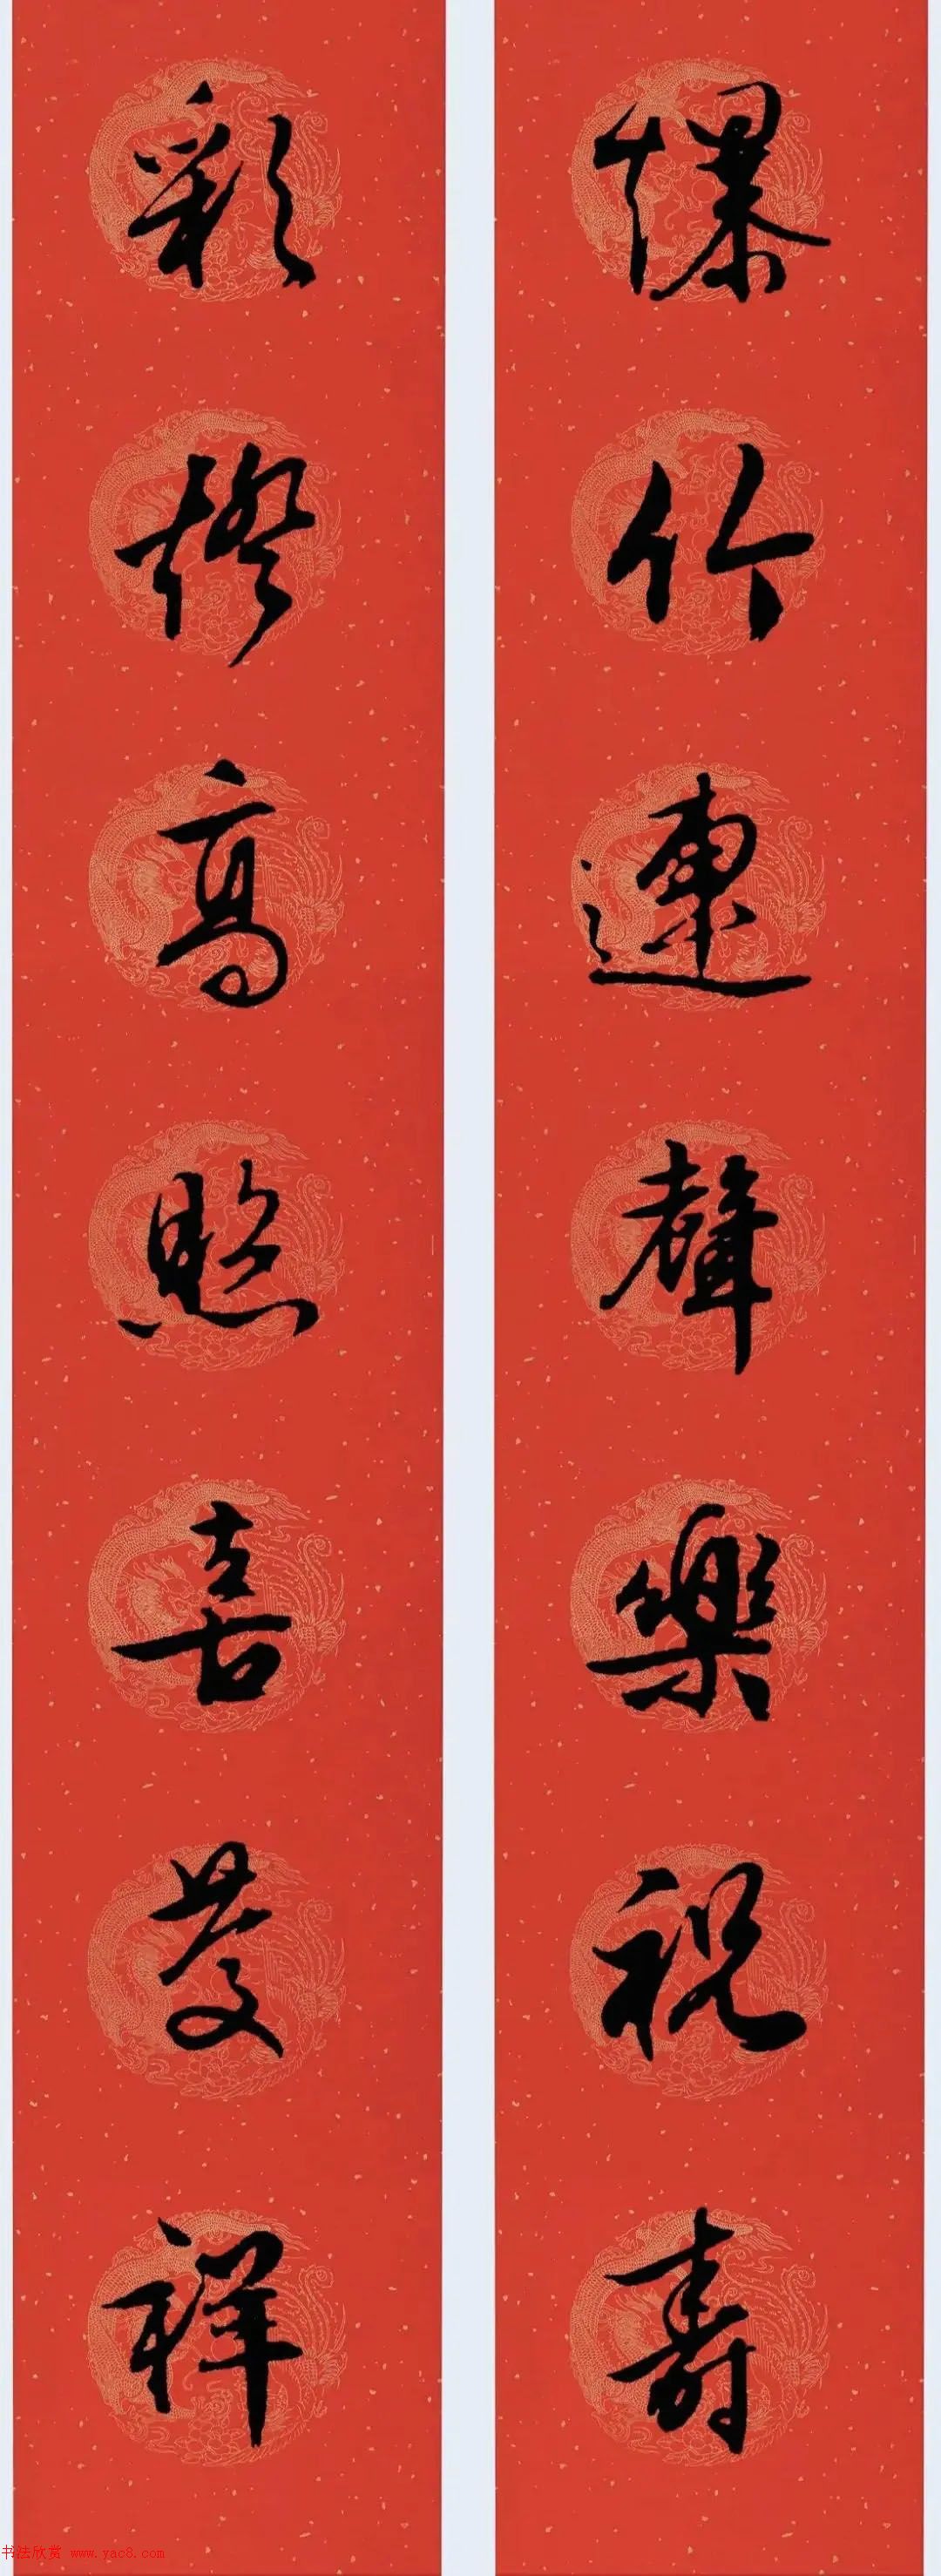 爆竹連聲樂祝壽
彩燈高照喜發祥
书法欣赏 www.yac8.com